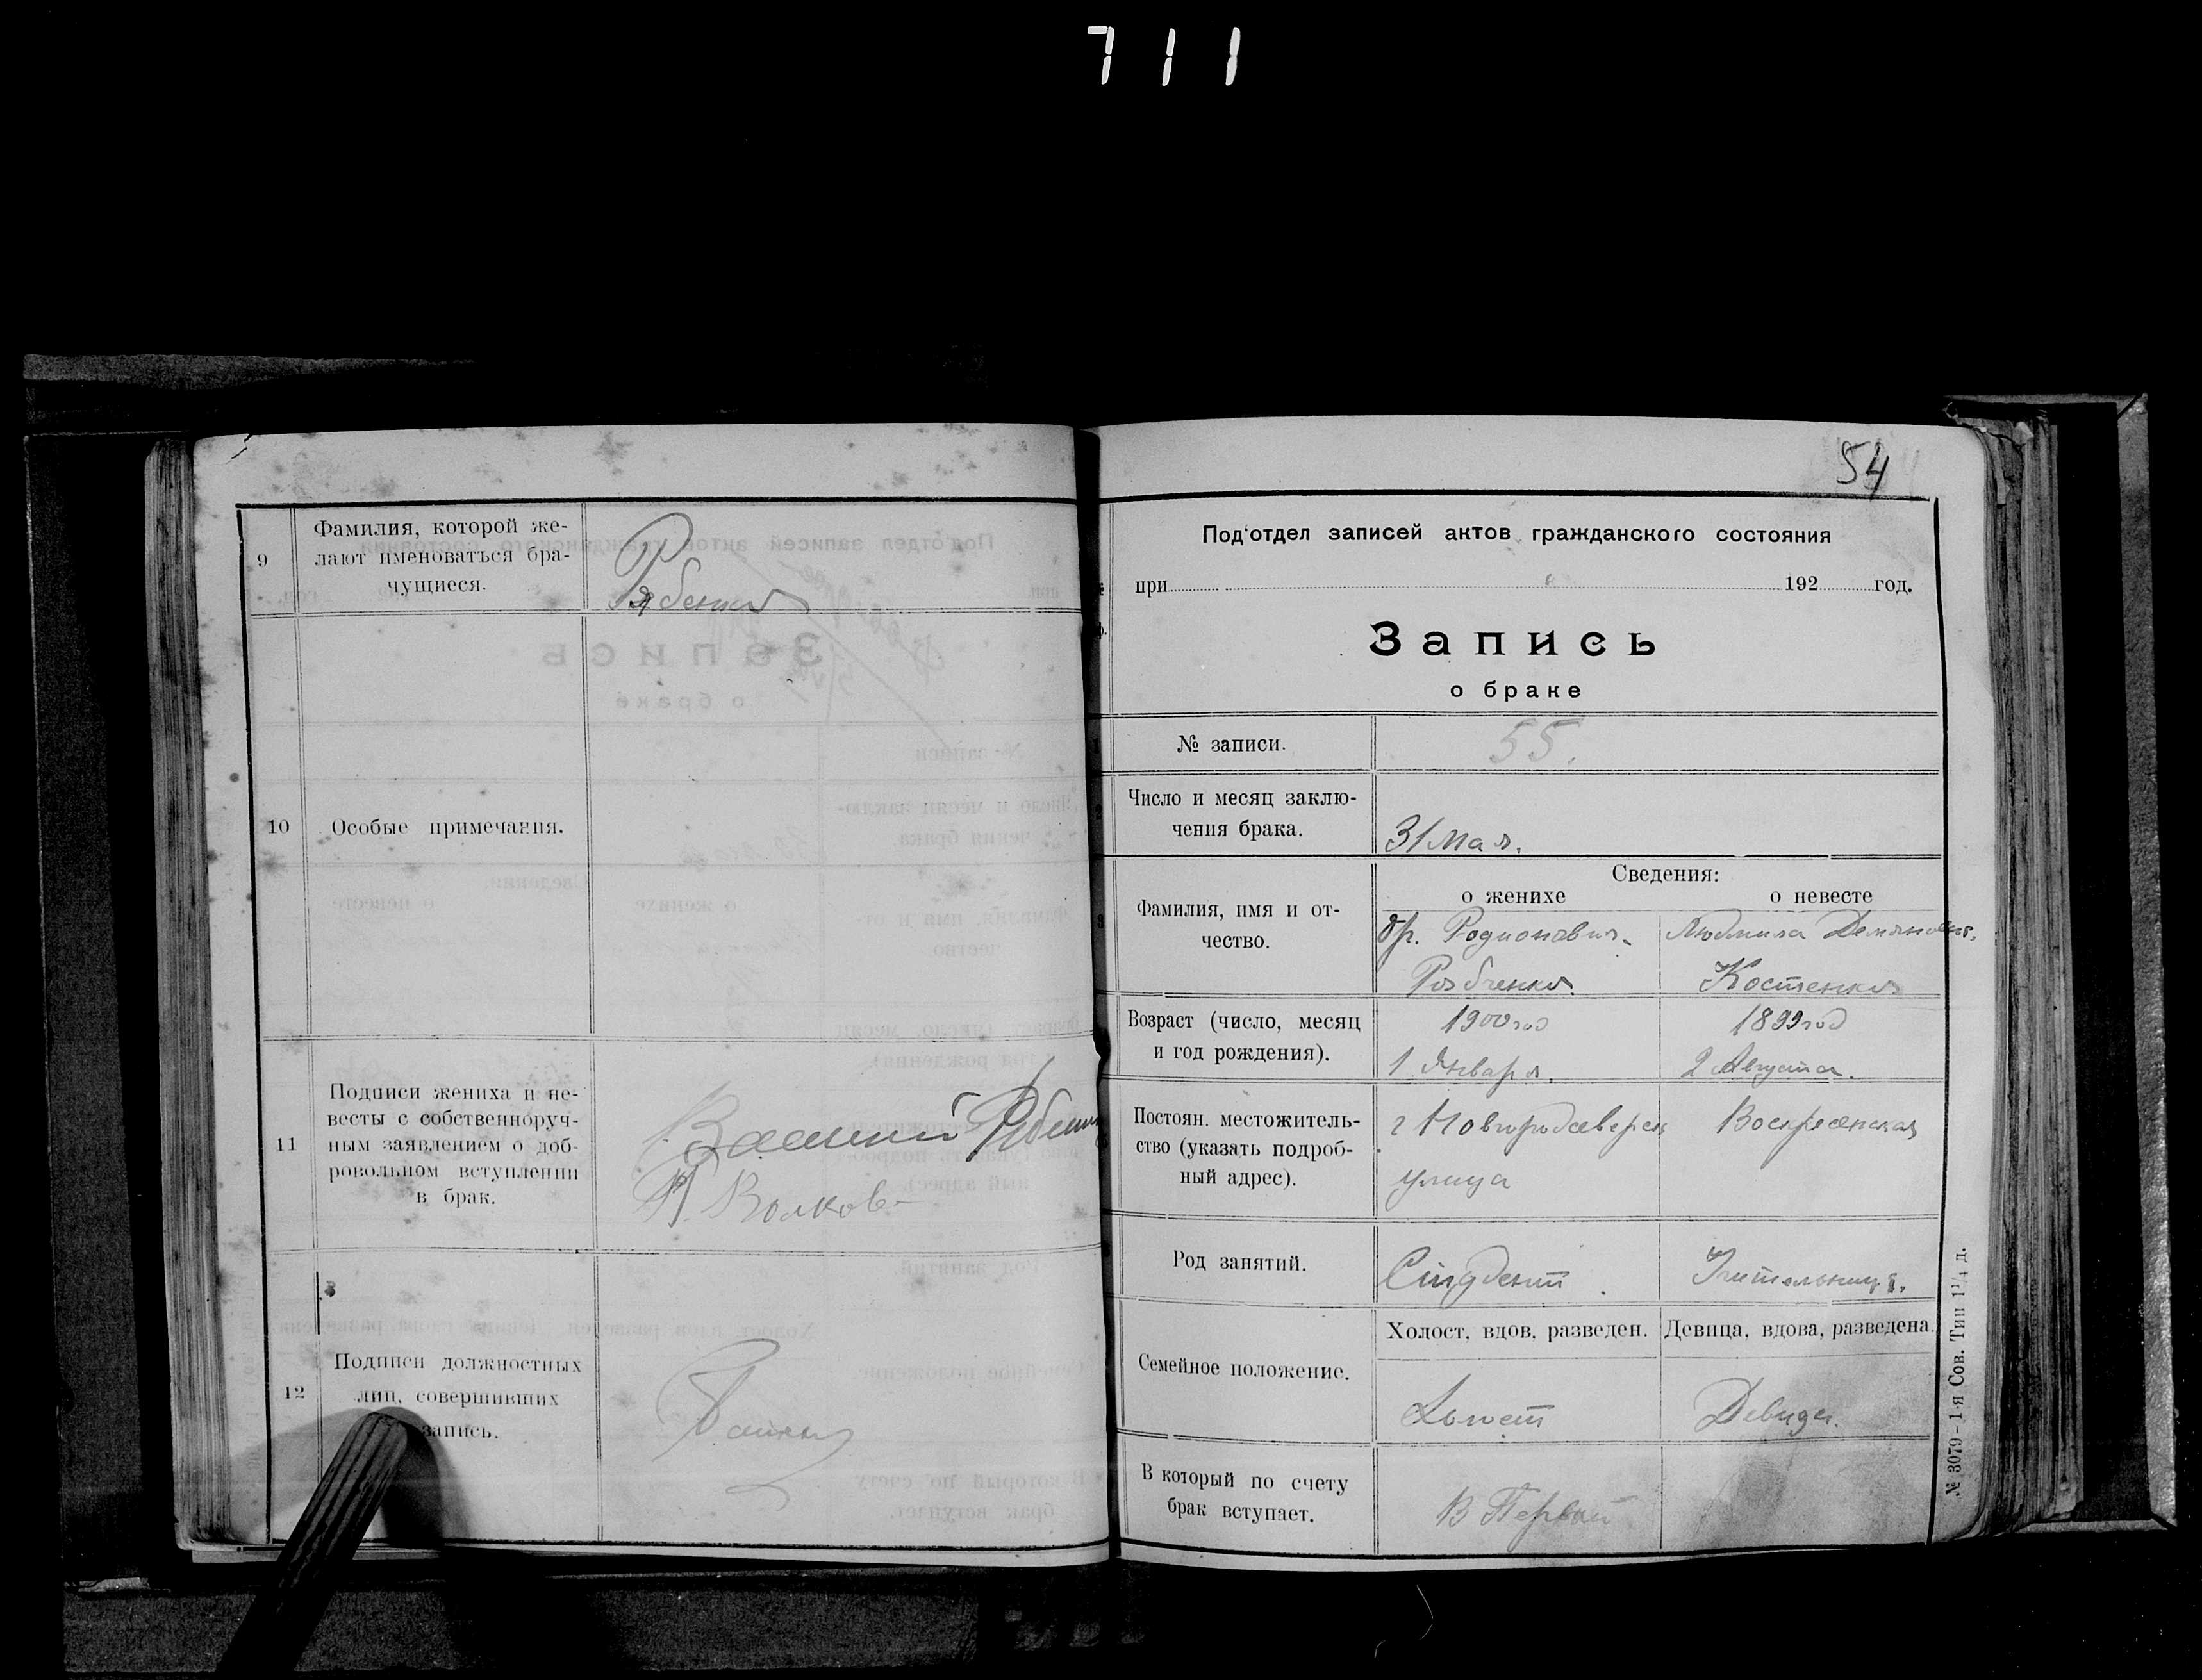 711
9
Фамилия, которой же-
лают именоваться бра-
чущиеся.
10
Особые примечания.
11
Подписи жениха и не-
весты с собственноруч-
ным заявлением о доб-
ровольном вступлении
в брак.
Волкова
12
Подписи должностных
лиц, совершивших
запись.
54
Под'отдел записей актов гражданского состояния
при 192 год.
Запись
о браке
№ записи.
55.
Число и месяц заклю-
чения брака.
31 Мая.
Фамилия, имя и от-
чество.
Сведения:
о женихе
о невесте
Родионович
Рябченко
Людмила Демяновна
Костенко
Возраст (число, месяц
и год рождения).
1900 год
1 Января.
1899 год
2 Августа.
Постоян. местожитель-
ство (указать подроб-
ный адрес).
г Новгородсеверск Воскресенская
улица
Род занятий.
Студент
Учительница.
Семейное положение.
Холост, вдов, разведен.
Девица, вдова, разведена.
Холост
Девица.
В который по счету
брак вступает.
В Первый
№ 3079 – 1-я Сов. Тип 1¼ д.